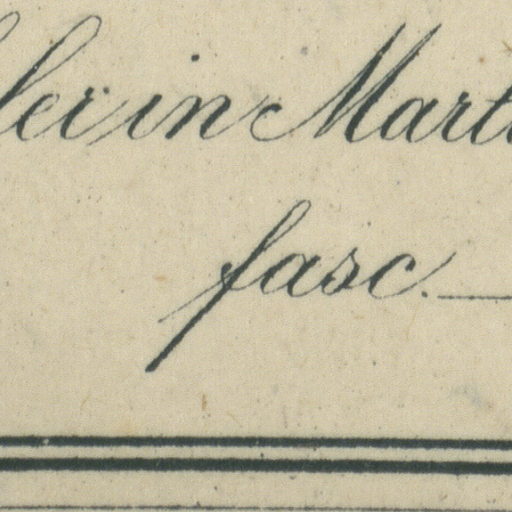 lei in Mart
fasc.